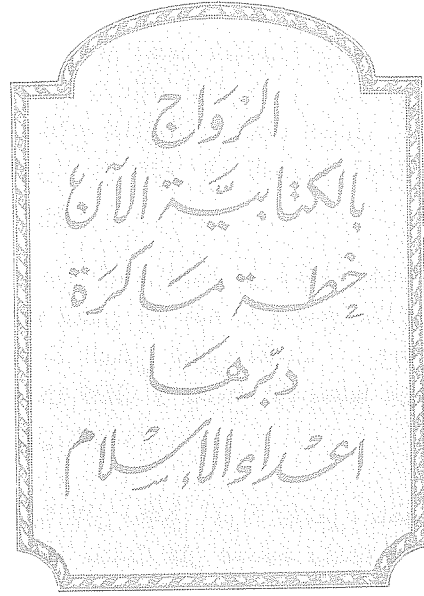 الزَوَاج
بالكتابيَّة الآن
خِطة مَاكَرَة
دبّرهَا
اعْداء الإسْلام